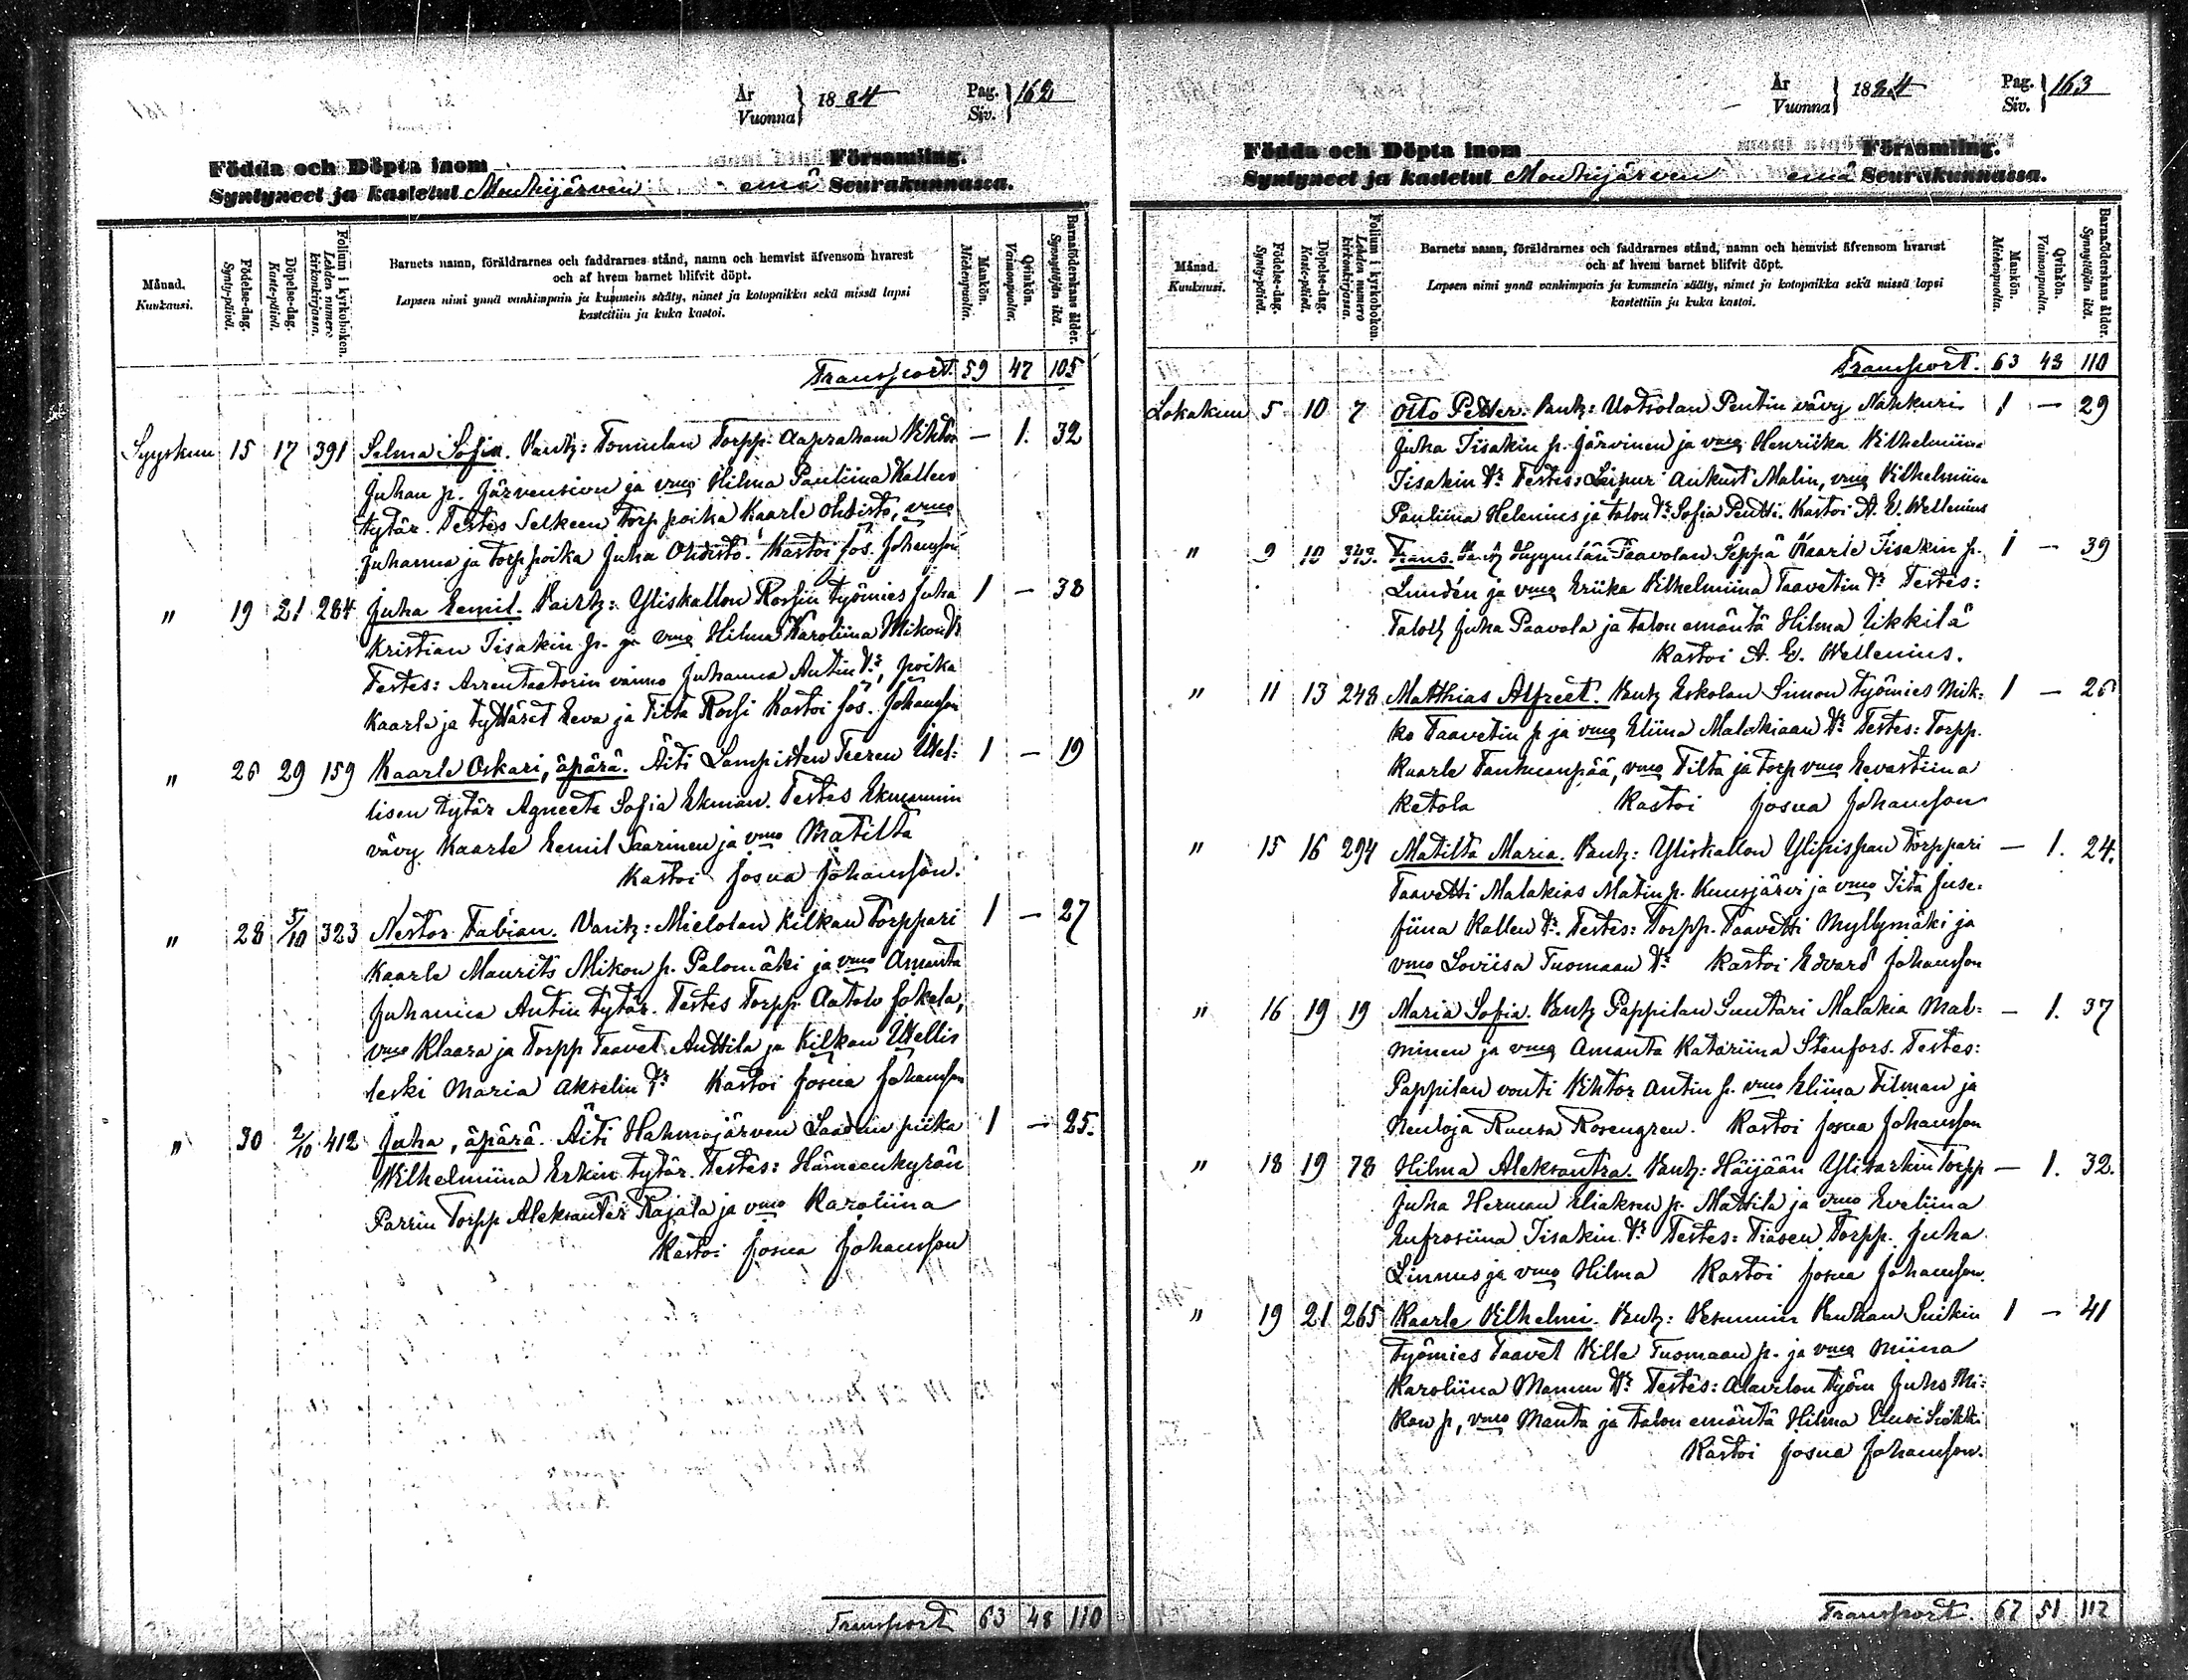 År Vuonna 1884 Pag. Siv. 162
Födda och Döpta inom Församling.
Syntyneet ja kastetut Mouhijärven emä Seurakunnassa.
Månad. Kuukausi.
Födelse-dag. Synty-päivä.
Döpelse-dag. Kaste-päivä.
Folium i kyrkoboken. Lehden numero kirkonkirjassa.
Barnets namn, föräldrarnes och faddrarnes stånd, namn och hemvist äfvensom hvarest
och af hvem barnet blifvit döpt.
Lapsen nimi ynnä vanhimpain ja kummein sääty, nimet ja kotopaikka sekä missä lapsi
kastettiin ja kuka kastoi.
Mankön. Miehenpuolia.
Qvinkön. Vaimonpuolia.
Barnaföderskans ålder. Synnyttäjän ikä.
Transport. 59 47 105
Syyskuu 15 17 391 Selma Sofia. Vanh: Tomulan Torpp. Aapraham Vihtor — 1. 32
Juhan p. Järvensivu ja vmo Hilma Pauliina Kallen
tytär. Testes Selkeen Torp poika Kaarle Ohdisto, vmo
Juhanna ja Torp poika Juha Ohdisto. Kastoi Jos. Johansson
" 19 21 284 Juha Eemil. Vanh: Yliskallon Rossin työmies Juha 1 — 38
Kristian Iisakin p. ja vmo Hilma Karoliina Mikon tr
Testes: Arrentaatorin vaimo Juhanna Antin tr, poika
Kaarle ja tyttäret Eeva ja Tilta Rossi Kastoi Jos. Johansson
" 26 29 159 Kaarle Oskari, äpärä. Äiti Lampisten Teeren Itsel: 1 — 19
lisen tytär Agneeta Sofia Ekman. Testes Ekmannin
vävy Kaarle Eemil Saarinen ja vmo Matilta
Kastoi Josua Johansson.
" 28 5/10 323 Nestor Fabian. Vanh: Mielolan Kilkan Torppari 1 — 27
Kaarle Maurits Mikon p. Palomäki ja vmo Amanta
Juhanna Antin tytär. Testes Torpp. Aatolv Jokela,
vmo Klaara ja Torpp Taavet Anttila ja Kilkan Itsellis
leski Maria Akselin tr Kastoi Josua Johansson
" 30 2/10 412 Juha, äpärä. Äiti Hahmajärven Laadun piika 1 — 25.
Wilhelmiina Erkin tytär. Testes: Hämeenkyrön
Parrin Torpp Aleksanter Rajala ja vmo Karoliina
Kastoi Josua Johansson
Transport 63 48 110
År Vuonna 1884 Pag. Siv. 163
Födda och Döpta inom Församling.
Syntyneet ja kastetut Mouhijärven emä Seurakunnassa.
Månad. Kuukausi.
Födelse-dag. Synty-päivä.
Döpelse-dag. Kaste-päivä.
Folium i kyrkoboken. Lehden numero kirkonkirjassa.
Barnets namn, föräldrarnes och faddrarnes stånd, namn och hemvist äfvensom hvarest
och af hvem barnet blifvit döpt.
Lapsen nimi ynnä vanhimpain ja kummein sääty, nimet ja kotopaikka sekä missä lapsi
kastettiin ja kuka kastoi.
Mankön. Miehenpuolia.
Qvinkön. Vaimonpuolia.
Barnaföderskans ålder. Synnyttäjän ikä.
Transport. 63 48 110
Lokakuu 5 10 7 Otto Petter. Vanh: Uotsolan Pentin vävy Nahkuri 1 — 29
Juha Iisakin p. Järvinen ja vmo Henriika Vilhelmiina
Iisakin tr. Testes: Leipuri Aukust Malin, vmo Vilhelmiina
Pauliina Helenius ja talon tr. Sofia Pentti. Kastoi A. E. Wellenius
" 9 10 343. Frans. Vanh Hyynilän Paavolan Seppä Kaarle Iisakin p. 1 — 39
Lundén ja vmo Eriika Vilhelmiina Taavetin tr. Testes:
Taloll Juha Paavola ja talon emäntä Hilma Ukkilä
Kastoi A. E. Wellenius.
" 11 13 248 Matthias Alfreet. Vanh Eskolan Simon työmies Mik: 1 — 26
ko Taavetin p ja vmo Eliina Malakiaan tr. Testes: Torpp.
Kaarle Tankuanpää, vmo Tilta ja Torp vmo Eevastiina
Ketola Kastoi Josua Johansson
" 15 16 294 Matilta Maria. Vanh: Yliskallon Ylipispan Torppari — 1. 24.
Taavetti Malakias Matin p. Kuusjärvi ja vmo Iita Juse:
fiina Kallen tr. Testes: Torpp. Taavetti Myllymäki ja
vmo Loviisa Tuomaan tr Kastoi Edvard Johansson
" 16 19 19 Maria Sofia. Vanh Pappilan Suutari Malakia Mal: — 1. 37
minen ja vmo Amanta Katariina Stenfors. Testes:
Pappilan vouti Vihtor Antin p. vmo Eliina Tilman ja
Neuloja Ruusa Rosengren. Kastoi Josua Johansson
" 18 19 78 Hilma Aleksantra. Vanh: Häijään Ylisarkin Torpp — 1. 32.
Juha Herman Eliaksen p. Mattila ja vmo Eveliina
Eufrosiina Iisakin tr Testes: Tiäsen Torpp. Juha
Linnus ja vmo Hilma Kastoi Josua Johansson.
" 19 21 265 Kaarle Vilhelmi. Vanh: Vesunnin Vanhan Suikin 1 — 41
työmies Taavet Ville Tuomaan p. ja vmo Miina
Karoliina Mannu tr Testes: Alavelon työm Juho Mi:
kon p, vmo Manta ja talon emäntä Hilma Uusi
Kastoi Josua Johansson.
Transport. 67 51 117